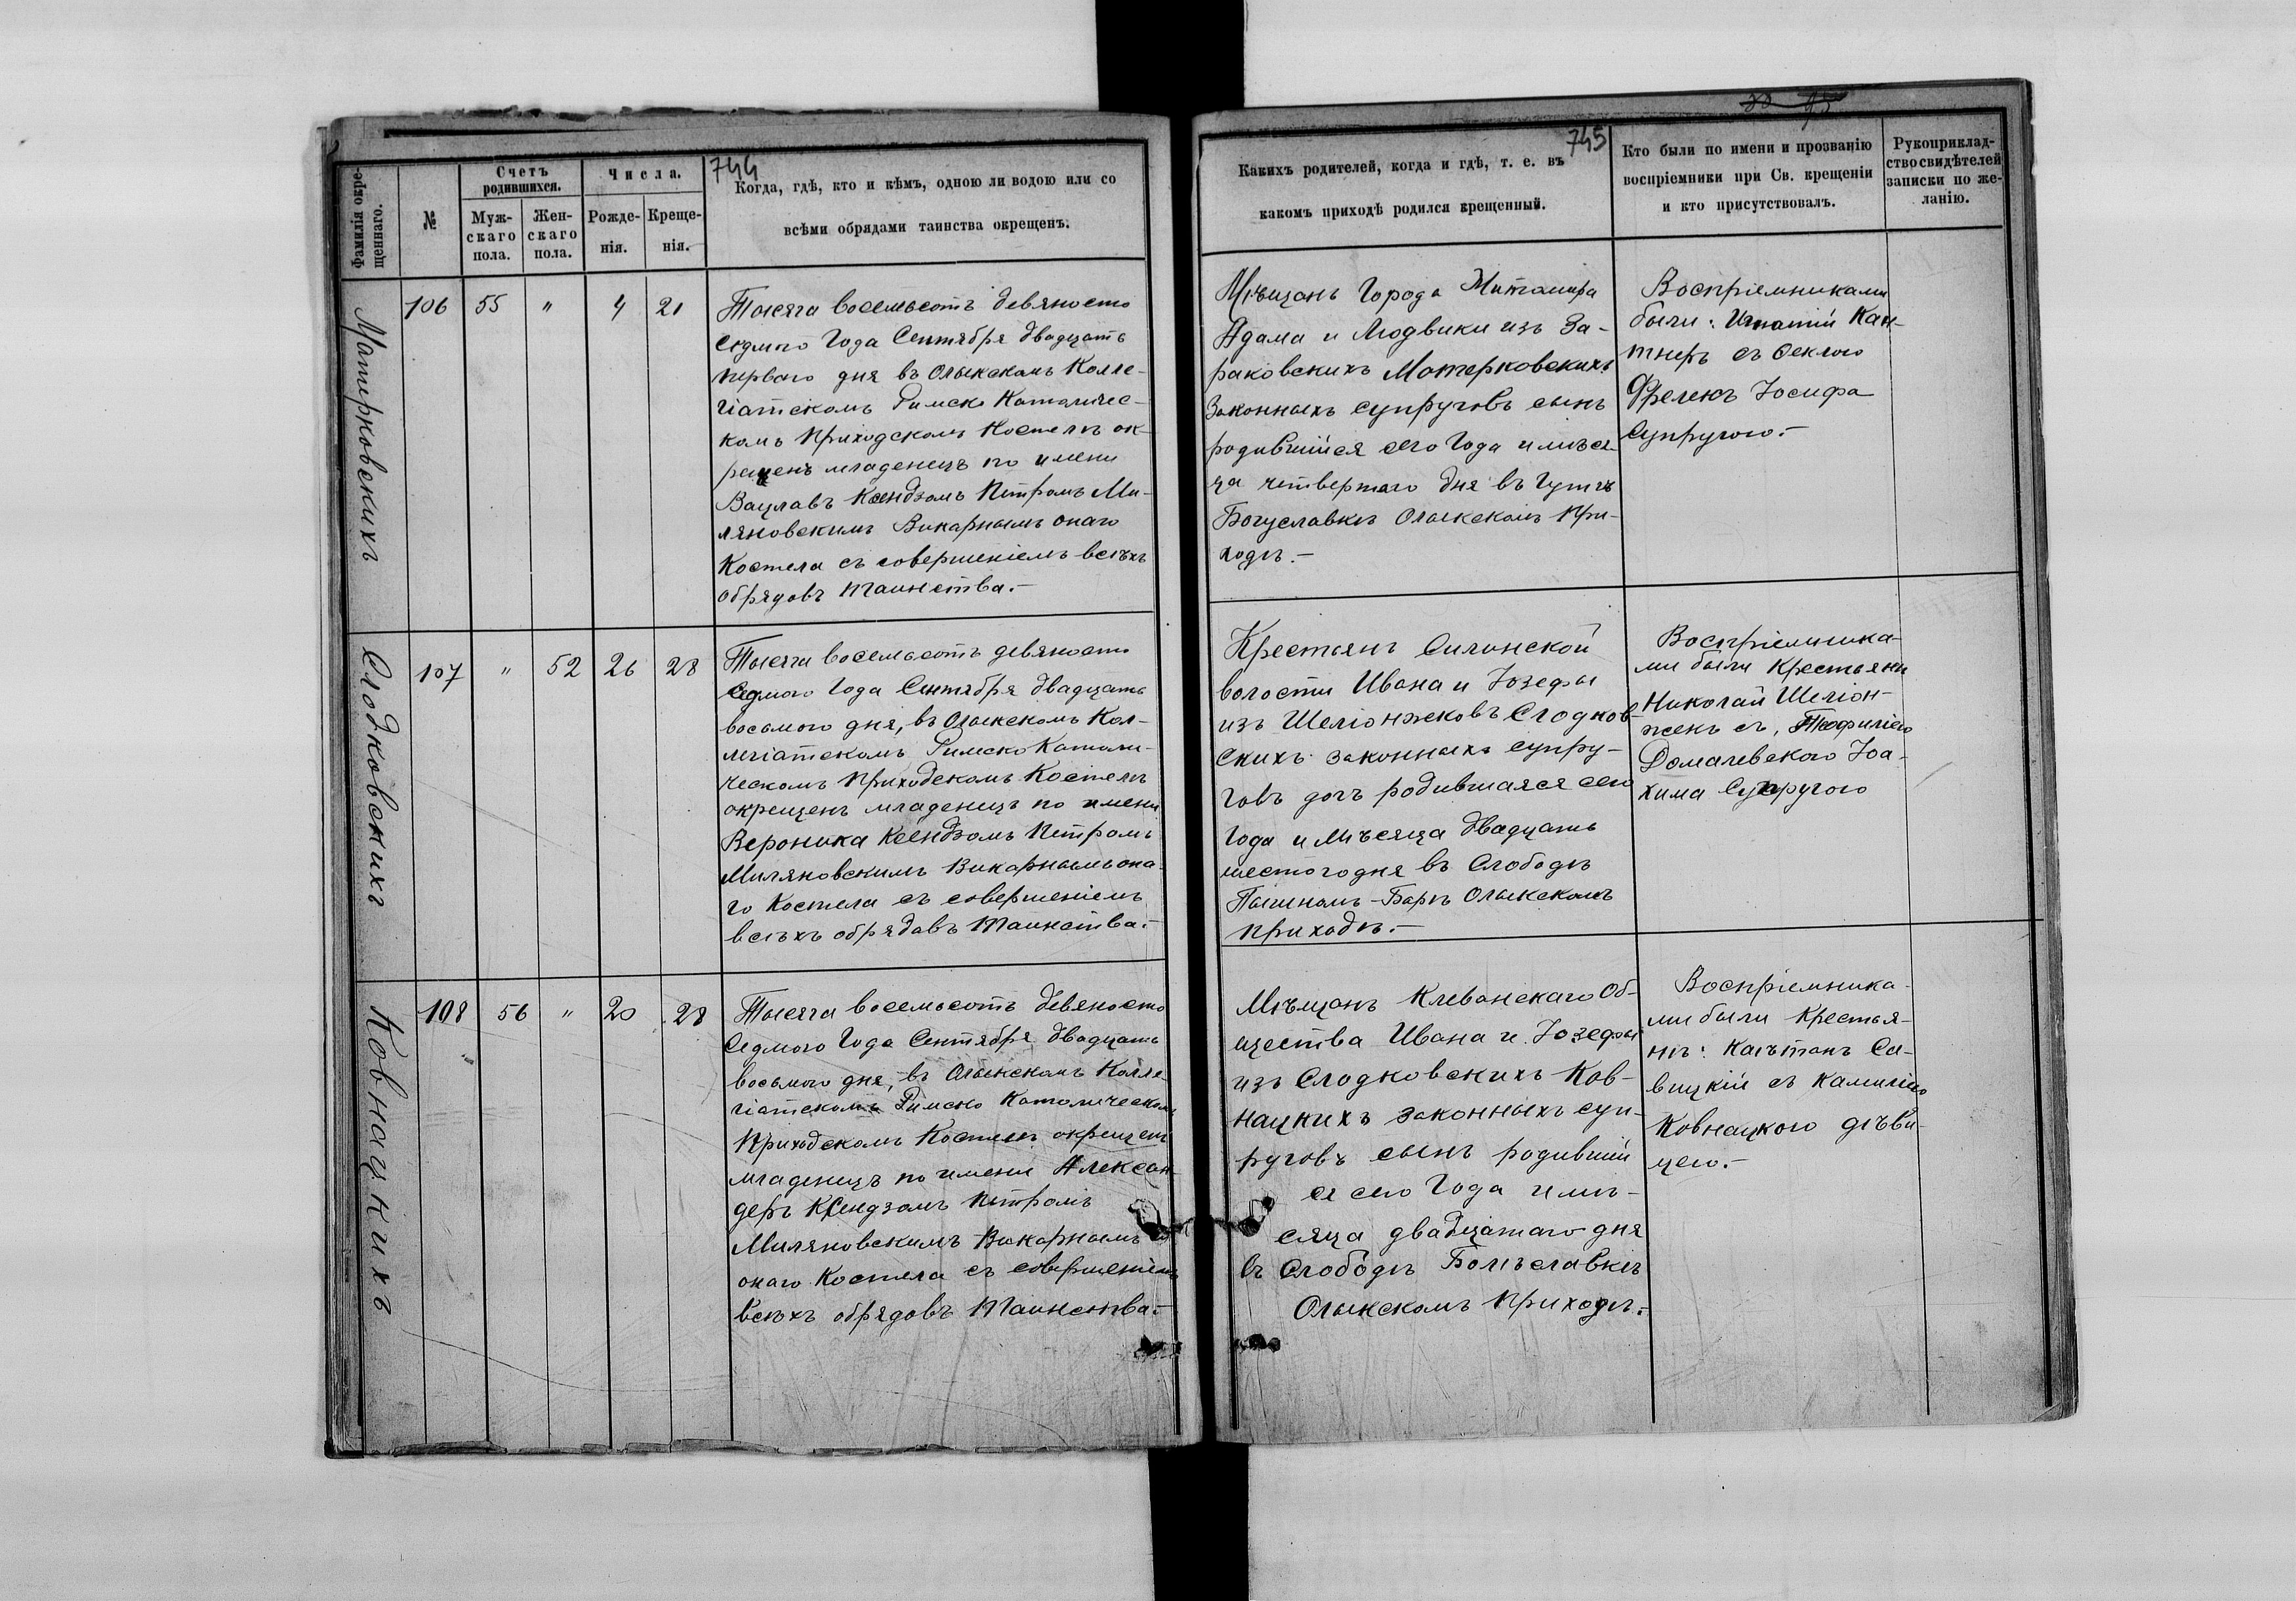 744
Фамилія окре-
щеннаго.
№
Счетъ
родившихся.
Муж-
скаго
пола.
Жен-
скаго
пола.
Числа.
Рожде-
нія.
Креще-
нія.
Когда, гдѣ, кто и кѣмъ, одною ли водою или со
всѣми обрядами таинства окрещенъ.
Матерковскихъ
106 55 " 4 21
Тысяча восемьсотъ девяносто
седмого Года Сентября двадцать
перваго дня въ Олыкскомъ Колле-
гіатскомъ Римско Католичес-
комъ Приходскомъ Костелѣ ок-
рещенъ младенецъ по имени
Вацлавъ Ксендзомъ Петромъ Ми-
ляновскимъ Викарнымъ онаго
Костела съ совершеніемъ всѣхъ
обрядовъ Таинства.-
Слодковскихъ
107 " 52 26 28
Тысяча восемьсотъ девяносто
Седмого Года Сентября двадцать
восьмого дня, въ Олыкскомъ Кол-
легіатскомъ Римско Католи-
ческомъ Приходскомъ Костелѣ
окрещенъ младенецъ по имени
Вероника Ксендзомъ Петромъ
Миляновскимъ Викарнымъ она-
го Костела съ совершеніемъ
всѣхъ обрядовъ Таинства.-
Ковнацкихъ
108 56 " 20 28
Тысяча восемьсотъ девяносто
Седмого Года Сентября двадцать
восьмого дня, въ Олыкскомъ Колле-
гіатскомъ Римско Католическомъ
Приходскомъ Костелѣ окрещенъ
младенецъ по имени Алексан-
деръ Ксендзомъ Петромъ
Миляновскимъ Викарнымъ
онаго Костела съ совершеніемъ
всѣхъ обрядовъ Таинства.-
745
Какихъ родителей, когда и гдѣ, т. е. въ
какомъ приходѣ родился крещенный.
Кто были по имени и прозванію
воспріемники при Св. крещеніи
и кто присутствовалъ.
Рукоприклад-
ство свидѣтелей
записки по же-
ланію.
Мѣщанъ Города Житомира
Адама и Людвики изъ За-
раковскихъ Матерковскихъ
Законныхъ супруговъ сынъ
родившійся сего Года и мѣся-
ца четвертаго дня въ Гутѣ
Богуславкѣ Олыкскомъ При-
ходѣ.-
Воспріемниками
были: Игнатій Кан-
тнеръ съ Феклою
Фрелекъ Іосифа
Супругою.-
Крестьянъ Силинской
волости Ивана и Іозефы
изъ Шеліонжковъ Слодков-
скихъ законныхъ супру-
говъ дочь родившаяся сего
Года и Мѣсяца двадцать
шестого дня въ Слободѣ
Пышномъ-Барѣ Олыкскомъ
приходѣ.-
Воспріемника-
ми были Крестьяни
Николай Шеліон-
жекъ съ, Теофиліею
Домалевского Іоа-
хима Супругою
Мѣщанъ Клеванскаго Об-
щества Ивана и Іозефы
изъ Слодковскихъ Ков-
нацкихъ законныхъ суп-
руговъ сынъ родившій
ся сего Года и мѣ-
сяца двадцатаго дня
въ Слободѣ Болѣславкѣ
Олыкскомъ Приходѣ.-
Воспріемника-
ми были Крестья-
нѣ: Каѣтанъ Са-
вицкій съ Камиліею
Ковнацкою дѣви-
цею.-